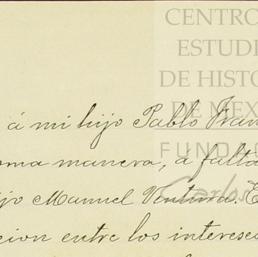 CENTRO
ESTUDI
DE HISTO
DE MEX
FUNDAC
Carlos
á mi hijo Pablo Fran
oma manera, á falta
ijo Manuel Ventura. E
cion entre los intereses